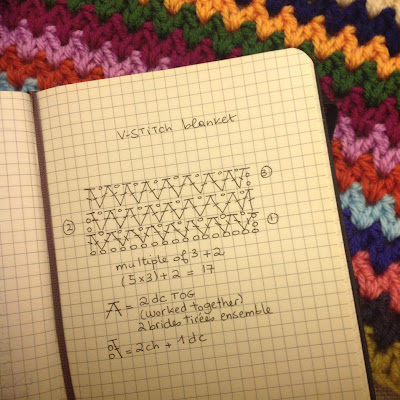 V-STITCH blanket
③
②
①
multiple of 3+2
(5x3)+2 = 17
= 2 dc TOG
(worked together)
2 brides tirées ensemble
= 2ch + 1dc